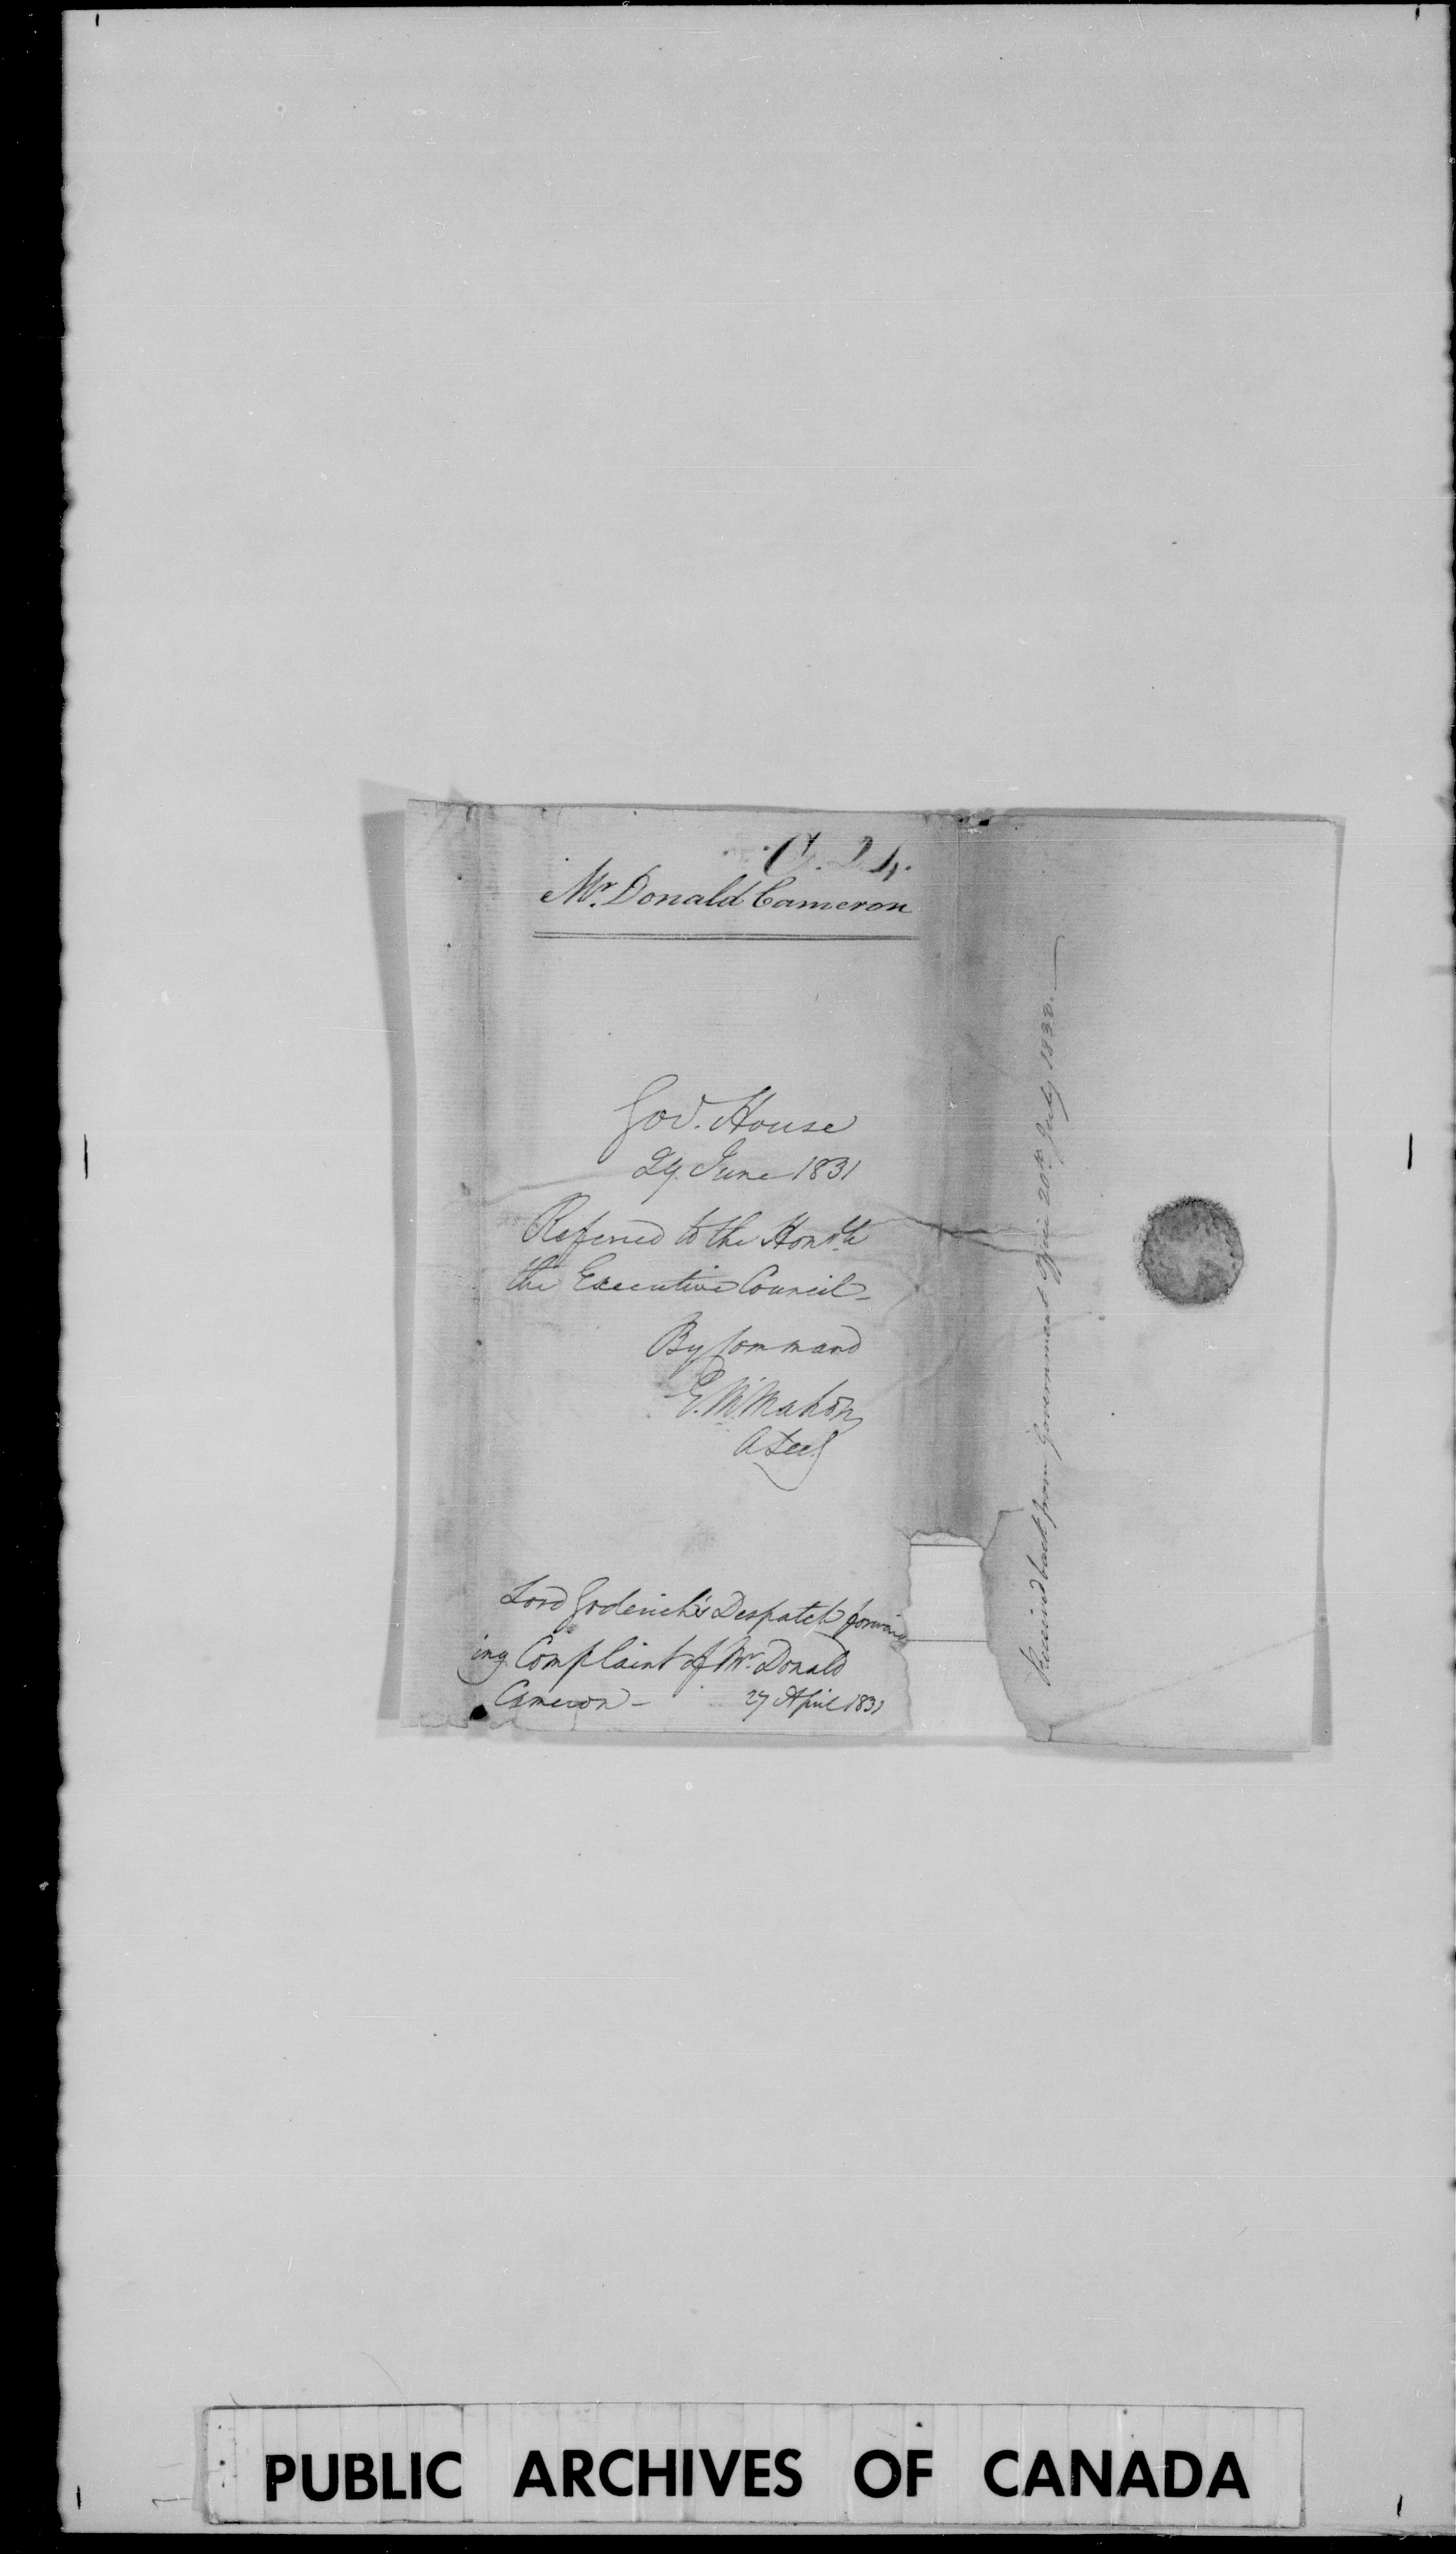 C. 24.
Mr. Donald Cameron
Gov. House
29 June 1831
Referred to the Honble
the Executive Council
By Command
E. McMahon
A Secy
Lord Goderich's Despatch forward
ing Complaint of Mr. Donald
Cameron - 27 April 1831
Received back from Government Office 20th July 1832. —
PUBLIC ARCHIVES OF CANADA